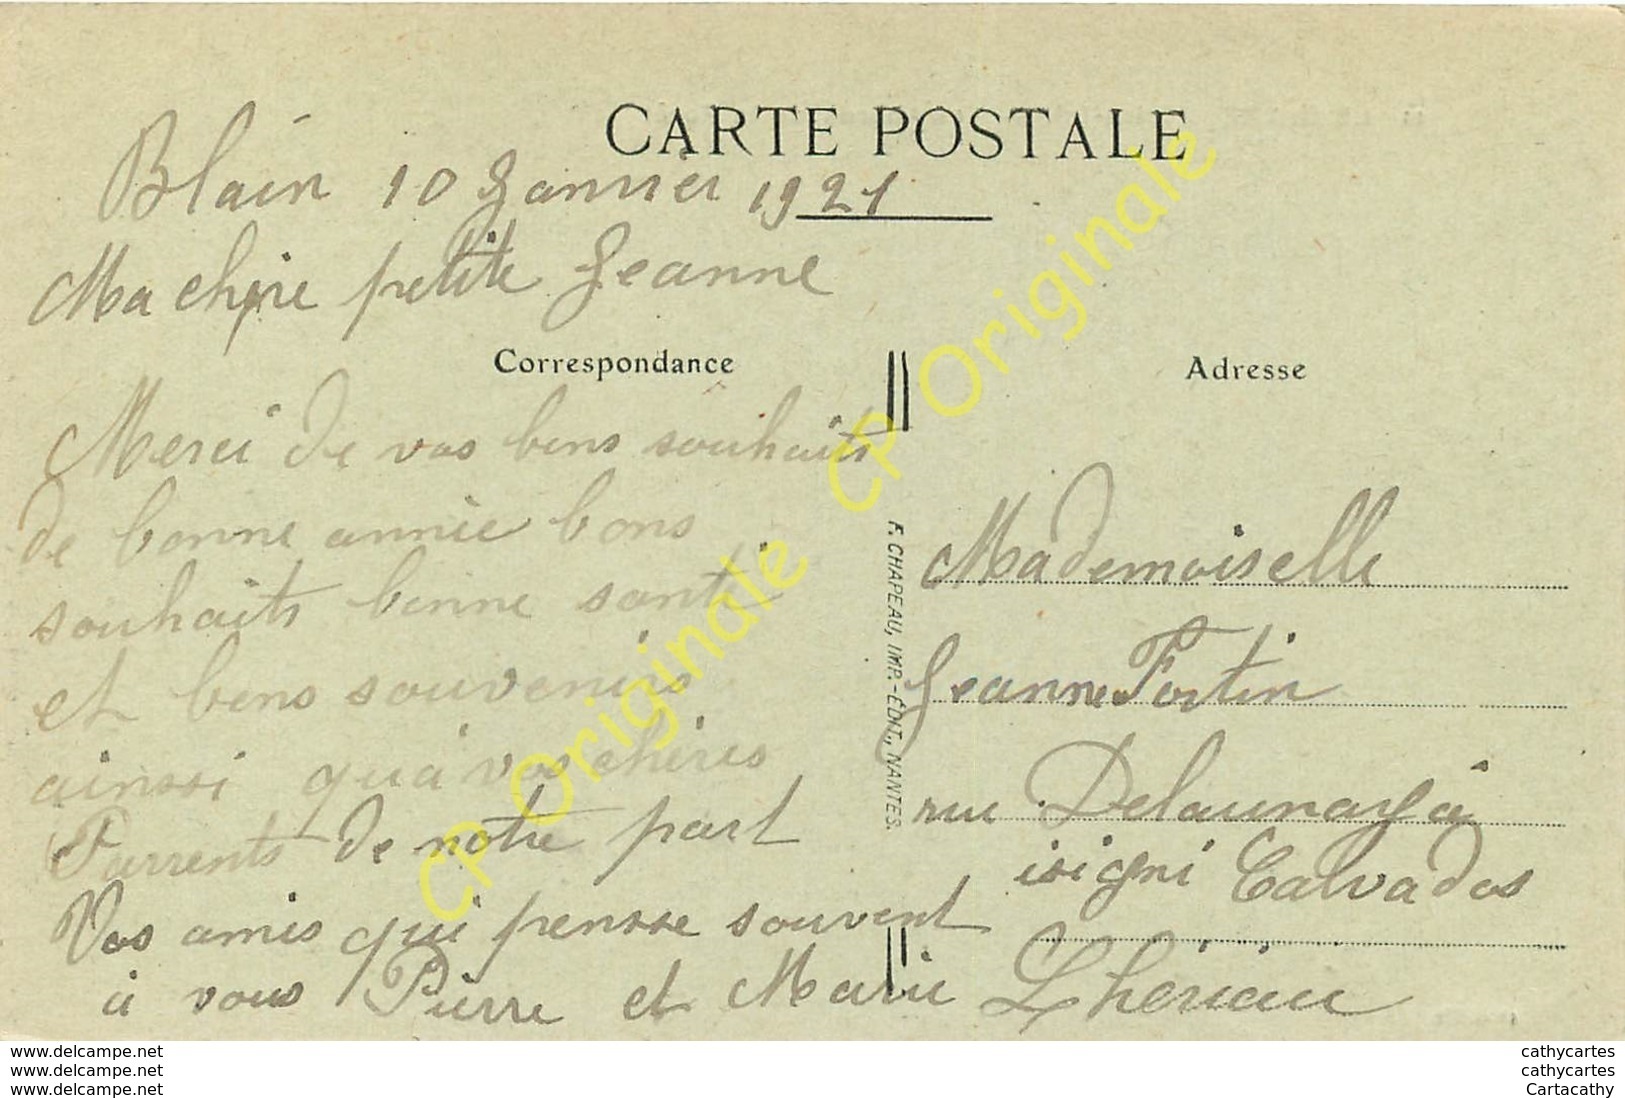 CARTE POSTALE
Blain 10 Janvier 1921
Ma chère petite Jeanne
Correspondance
Merci de vos bons souhaits
de bonne année bons
souhaits bonne santé
et bons souvenirs
ainsi qu'à vos chères
Parrents de notre part
Vos amis qui pensse souvent
à vous Pierre et Marie Lhériau
Adresse
Mademoiselle
Jeanne Fortin
rue Delaunay à
isigni Calvados
F. CHAPEAU, IMP.-ÉDIT., NANTES.
CP Originale CP Originale CP Originale
www.delcampe.net
www.delcampe.net
www.delcampe.net
cathycartes
cathycartes
Cartacathy